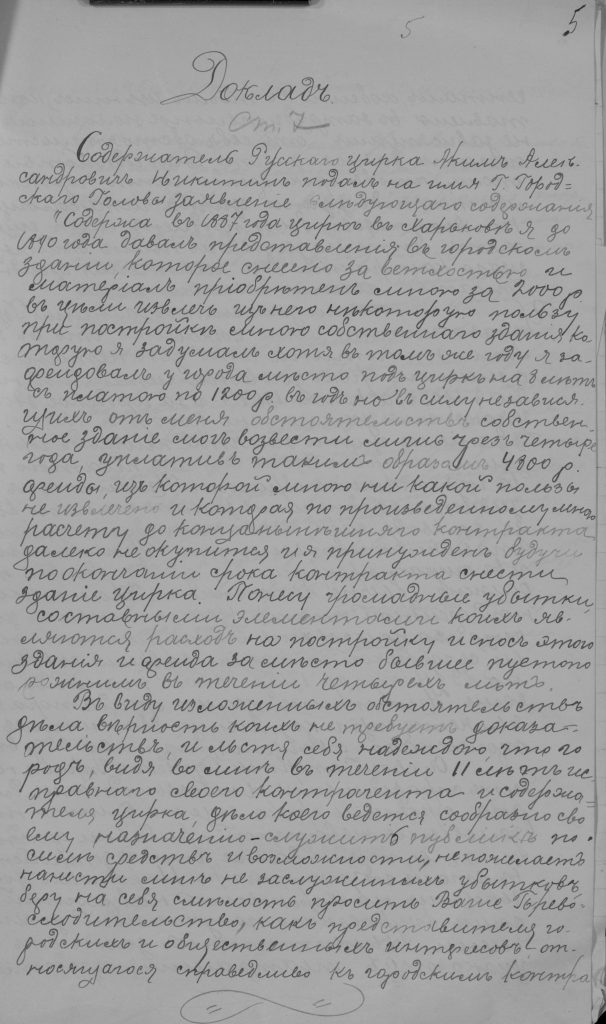 5
5
Докладъ
Ст. 7
Содержатель Русскаго цирка Акимъ Алек-
сандровичъ Никитинъ подалъ на имя Г. Город=
скаго Головы заявление слѣдующаго содержания
"Содержа въ 1887 года циркъ въ Харьковѣ я до
1890 года давалъ представленія въ городскомъ
зданіи, которое снесено за ветхостью и
матеріалъ пріобрѣтенъ мною за 2000 р.
въ цѣли извлечь изъ него нѣкоторую пользу
при постройкѣ мною собственнаго зданія ко
торую я задумалъ хотя въ томъ же году я за-
арендовалъ у города мѣсто подъ циркъ на 8 лѣтъ
съ платою по 1200 р. въ годъ но въ силу независя-
щихъ отъ меня обстоятельствъ собствен-
ное зданіе могъ возвести лишь чрезъ четыре
года, уплативъ такимъ образомъ 4800 р.
аренды, изъ которой мною ни какой пользы
не извлечено и которая по произведенному мною
расчету до конца нынѣшняго контракта
далеко не окупится и я принужденъ будучи
по окончаніи срока контракта снести
зданіе цирка. Понесу громадные убытки,
составными элементами коихъ яв-
ляются расходъ на постройку и сносъ этого
зданія и аренда за мѣсто бывшее пустопо
рожнимъ въ теченіи четырехъ лѣтъ.
Въ виду изложенныхъ обстоятельствъ
дѣла вѣрность коихъ не требуетъ доказа-
тельствъ, и льстя себя надеждою что го
родъ, видя во мнѣ въ теченіи 11 лѣтъ ис-
правнаго своего контрагента и содержа=
теля цирка, дѣло коего ведется сообразно сво
ему назначенію - служить публикѣ по
силѣ средствъ и возможности, не пожелаетъ
нанести мнѣ не заслуженныхъ убытковъ
беру на себя смѣлость просить Ваше Прево-
сходительство, какъ представителя го-
родскихъ и общественныхъ интересовъ от-
носящагося справедливо къ городскимъ контра